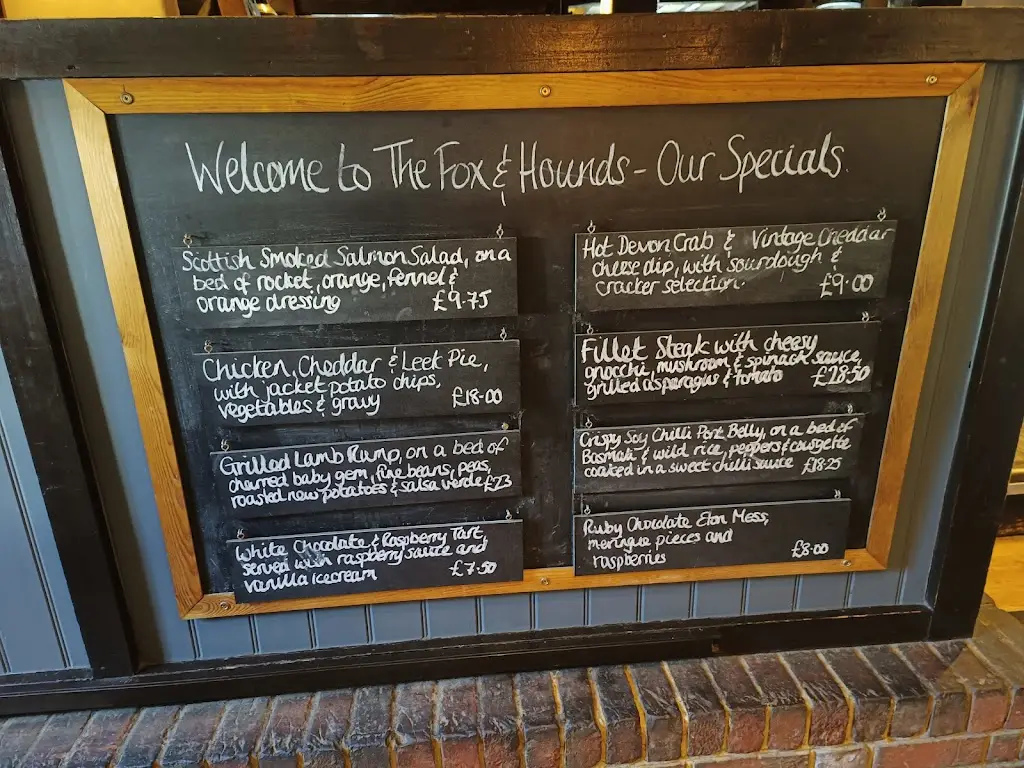 Welcome to The Fox & Hounds - Our Specials.
Scottish Smoked Salmon Salad, on a
bed of rocket, orange, fennel &
orange dressing £9.75
Chicken, Cheddar & Leek Pie,
with jacket potato chips,
vegetables & gravy £18.00
Grilled Lamb Rump, on a bed of
charred baby gem, fine beans, peas,
roasted new potatoes & salsa verde £23
White Chocolate & Raspberry Tart,
served with raspberry sauce and
vanilla icecream £7.50
Hot Devon Crab & Vintage Cheddar
cheese dip, with sourdough &
cracker selection. £9.00
Fillet Steak with cheesy
gnocchi, mushroom & spinach sauce,
grilled asparagus & tomato £28.50
Crispy Soy Chilli Pork Belly, on a bed of
Basmati & wild rice, peppers & courgette
coated in a sweet chilli sauce £18.25
Ruby Chocolate Eton Mess,
meringue pieces and
raspberries £8.00